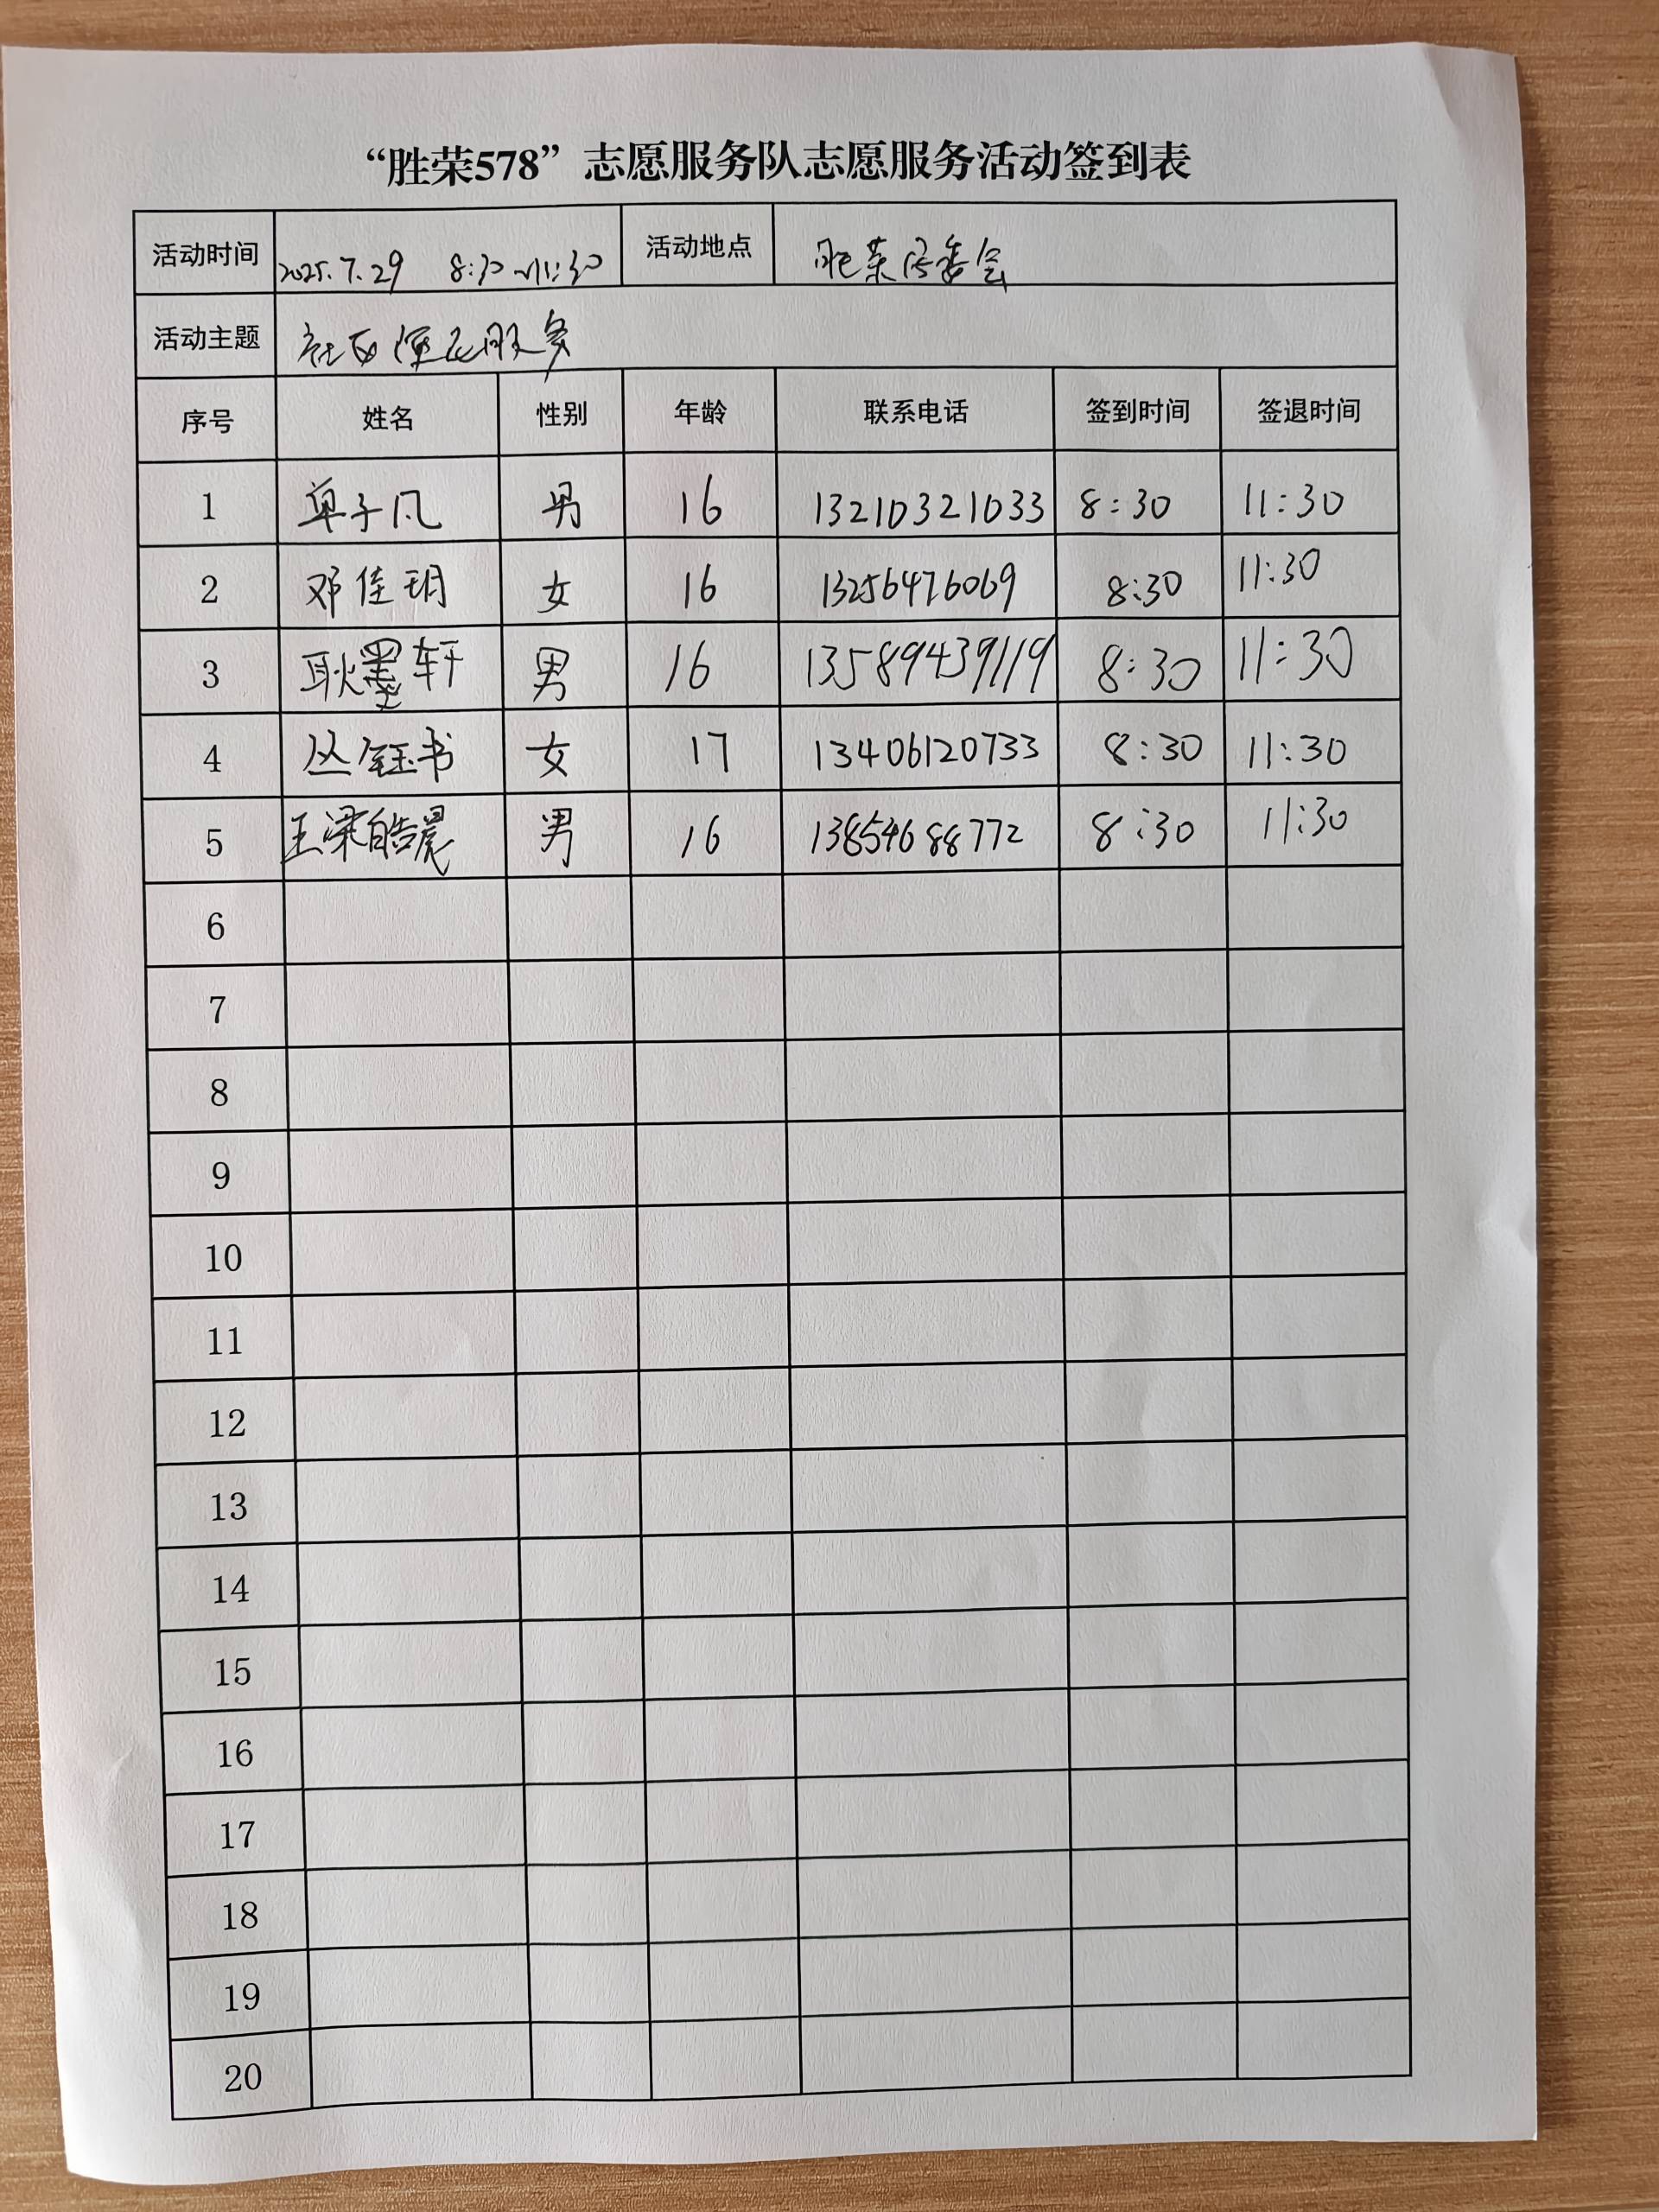 “胜荣578”志愿服务队志愿服务活动签到表
活动时间 2025.7.29 8:30~11:30 活动地点 胜荣居委会
活动主题 社区便民服务
序号 姓名 性别 年龄 联系电话 签到时间 签退时间
1 单子凡 男 16 13210321033 8:30 11:30
2 邓佳玥 女 16 13256476069 8:30 11:30
3 耿墨轩 男 16 13589439119 8:30 11:30
4 丛钰书 女 17 13406120733 8:30 11:30
5 王梁皓晨 男 16 13854688772 8:30 11:30
6
7
8
9
10
11
12
13
14
15
16
17
18
19
20